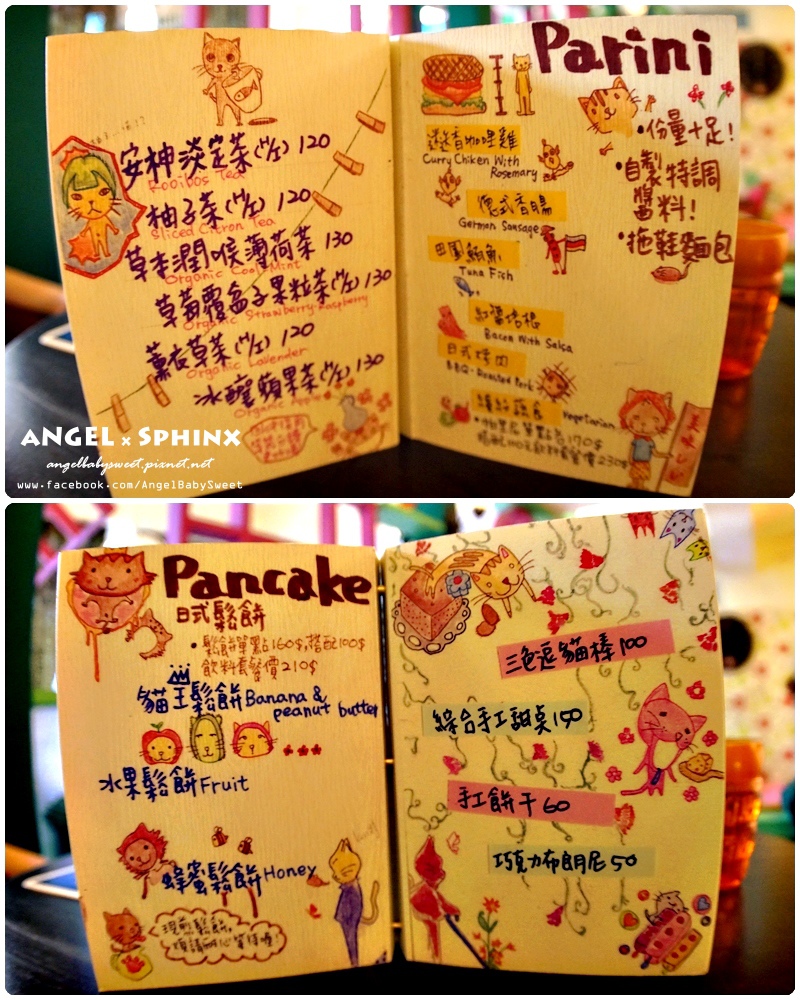 安神淡定茶(壺) 120
Rooibos Tea
柚子茶(壺) 120
Sliced Citron Tea
草本潤喉薄荷茶 130
Organic Cool Mint
草莓覆盆子果粒茶(壺) 130
Organic Strawberry-Raspberry
薰衣草茶(壺) 120
Organic Lavender
冰釀蘋果茶(壺) 130
Organic Apple
Parini
香咖哩雞
Curry Chiken With
Rosemary
德式香腸
German Sausage
田園鮪魚
Tuna Fish
紅醬培根
Bacon With Salsa
日式烤肉
BBQ-Roasted Pork
繽紛蔬食
Vegetarian
單點包170$
搭配100元飲料套餐價230$
•份量十足!
•自製特調
醬料!
•拖鞋麵包
美味
ANGEL x SPHINX
angelbabysweet.pixnet.net
www.facebook.com/AngelBabySweet
Pancake
日式鬆餅
•鬆餅單點160$,搭配100$
飲料套餐價210$
貓王鬆餅Banana &
peanut butter
水果鬆餅Fruit
蜂蜜鬆餅Honey
現煎鬆餅,
煩請耐心等待喔!
三色逗貓棒 100
綜合手工甜桌150
手工餅干60
巧克力布朗尼50